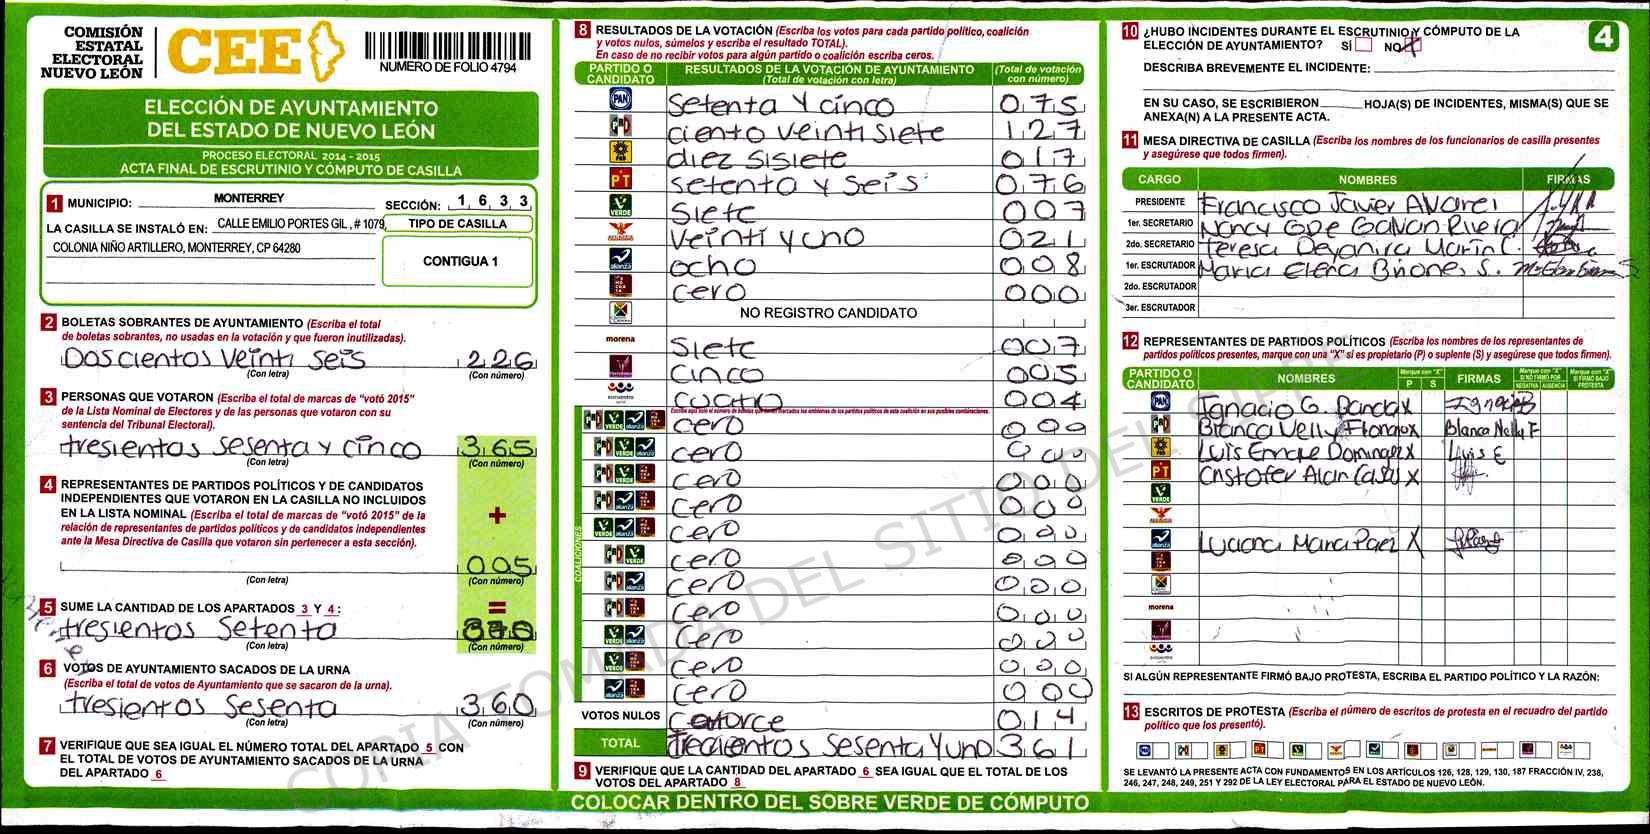 COMISIÓN
ESTATAL
ELECTORAL
NUEVO LEÓN
CEE
NUMERO DE FOLIO 4794
ELECCIÓN DE AYUNTAMIENTO
DEL ESTADO DE NUEVO LEÓN
PROCESO ELECTORAL 2014 - 2015
ACTA FINAL DE ESCRUTINIO Y CÓMPUTO DE CASILLA
1 MUNICIPIO: MONTERREY SECCIÓN: 1 6 3 3
LA CASILLA SE INSTALÓ EN: CALLE EMILIO PORTES GIL , # 1079,
COLONIA NIÑO ARTILLERO, MONTERREY, CP 64280
TIPO DE CASILLA
CONTIGUA 1
2 BOLETAS SOBRANTES DE AYUNTAMIENTO (Escriba el total
de boletas sobrantes, no usadas en la votación y que fueron inutilizadas).
Doscientos Veinti seis 226
(Con letra) (Con número)
3 PERSONAS QUE VOTARON (Escriba el total de marcas de "votó 2015"
de la Lista Nominal de Electores y de las personas que votaron con su
sentencia del Tribunal Electoral).
tresientos sesenta y cinco 365
(Con letra) (Con número)
4 REPRESENTANTES DE PARTIDOS POLÍTICOS Y DE CANDIDATOS
INDEPENDIENTES QUE VOTARON EN LA CASILLA NO INCLUIDOS
EN LA LISTA NOMINAL (Escriba el total de marcas de "votó 2015" de la
relación de representantes de partidos políticos y de candidatos independientes
ante la Mesa Directiva de Casilla que votaron sin pertenecer a esta sección).
+
005
(Con letra) (Con número)
=
5 SUME LA CANTIDAD DE LOS APARTADOS 3 Y 4 :
tresientos Setenta 370
(Con letra) (Con número)
6 VOTOS DE AYUNTAMIENTO SACADOS DE LA URNA
(Escriba el total de votos de Ayuntamiento que se sacaron de la urna).
tresientos Sesenta 360
(Con letra) (Con número)
7 VERIFIQUE QUE SEA IGUAL EL NÚMERO TOTAL DEL APARTADO 5 CON
EL TOTAL DE VOTOS DE AYUNTAMIENTO SACADOS DE LA URNA
DEL APARTADO 6
8 RESULTADOS DE LA VOTACIÓN (Escriba los votos para cada partido político, coalición
y votos nulos, súmelos y escriba el resultado TOTAL).
En caso de no recibir votos para algún partido o coalición escriba ceros.
PARTIDO O CANDIDATO RESULTADOS DE LA VOTACIÓN DE AYUNTAMIENTO (Total de votación con letra) (Total de votación con número)
PAN Setenta y cinco 075
PRD ciento veinti siete 127
PRD diez sisiete 017
PT setenta y seis 076
VERDE Siete 007
Veinti y uno 021
alianza ocho 008
cero 000
NO REGISTRO CANDIDATO
morena Siete 007
cinco 005
encuentro cuatro 004
Escriba aquí sólo el número de boletas que fueron marcadas los emblemas de los partidos políticos de esta coalición en sus posibles combinaciones.
COALICIONES
cero 000
cero 000
cero 000
cero 000
cero 000
cero 000
cero 000
cero 000
cero 000
cero 000
cero 000
VOTOS NULOS Catorce 014
TOTAL Trecientos Sesenta Y uno 361
9 VERIFIQUE QUE LA CANTIDAD DEL APARTADO 6 SEA IGUAL QUE EL TOTAL DE LOS
VOTOS DEL APARTADO 8
COLOCAR DENTRO DEL SOBRE VERDE DE CÓMPUTO
4
10 ¿HUBO INCIDENTES DURANTE EL ESCRUTINIO Y CÓMPUTO DE LA
ELECCIÓN DE AYUNTAMIENTO? SÍ NO X
DESCRIBA BREVEMENTE EL INCIDENTE:
EN SU CASO, SE ESCRIBIERON HOJA(S) DE INCIDENTES, MISMA(S) QUE SE
ANEXA(N) A LA PRESENTE ACTA.
11 MESA DIRECTIVA DE CASILLA (Escriba los nombres de los funcionarios de casilla presentes
y asegúrese que todos firmen).
CARGO NOMBRES FIRMAS
PRESIDENTE Francisco Javier Alvarez
1er. SECRETARIO Nancy Gpe Galvan Rivera
2do. SECRETARIO Teresa Deyanira Marin C.
1er. ESCRUTADOR Maria Elena Briones S.
2do. ESCRUTADOR
3er. ESCRUTADOR
12 REPRESENTANTES DE PARTIDOS POLÍTICOS (Escriba los nombres de los representantes de
partidos políticos presentes, marque con una "X" si es propietario (P) o suplente (S) y asegúrese que todos firmen).
PARTIDO O CANDIDATO NOMBRES Marque con "X" P S FIRMAS Marque con "X" SI NO FIRMÓ POR NEGATIVA AUSENCIA Marque con "X" SI FIRMÓ BAJO PROTESTA
PAN Ignacio G. Banda X
Blanca Nelly Flores X Blanca Nelly F
PRD Luis Enrique Dominguez X Luis E
PT Cristofer Alan X
VERDE
alianza Luciana Maria Paez X
morena
encuentro
SI ALGÚN REPRESENTANTE FIRMÓ BAJO PROTESTA, ESCRIBA EL PARTIDO POLÍTICO Y LA RAZÓN:
13 ESCRITOS DE PROTESTA (Escriba el número de escritos de protesta en el recuadro del partido
político que los presentó).
SE LEVANTÓ LA PRESENTE ACTA CON FUNDAMENTOS EN LOS ARTÍCULOS 126, 128, 129, 130, 187 FRACCIÓN IV, 238,
246, 247, 248, 249, 251 Y 292 DE LA LEY ELECTORAL PARA EL ESTADO DE NUEVO LEÓN.
COPIA TOMADA DEL SITIO DEL SIPRE